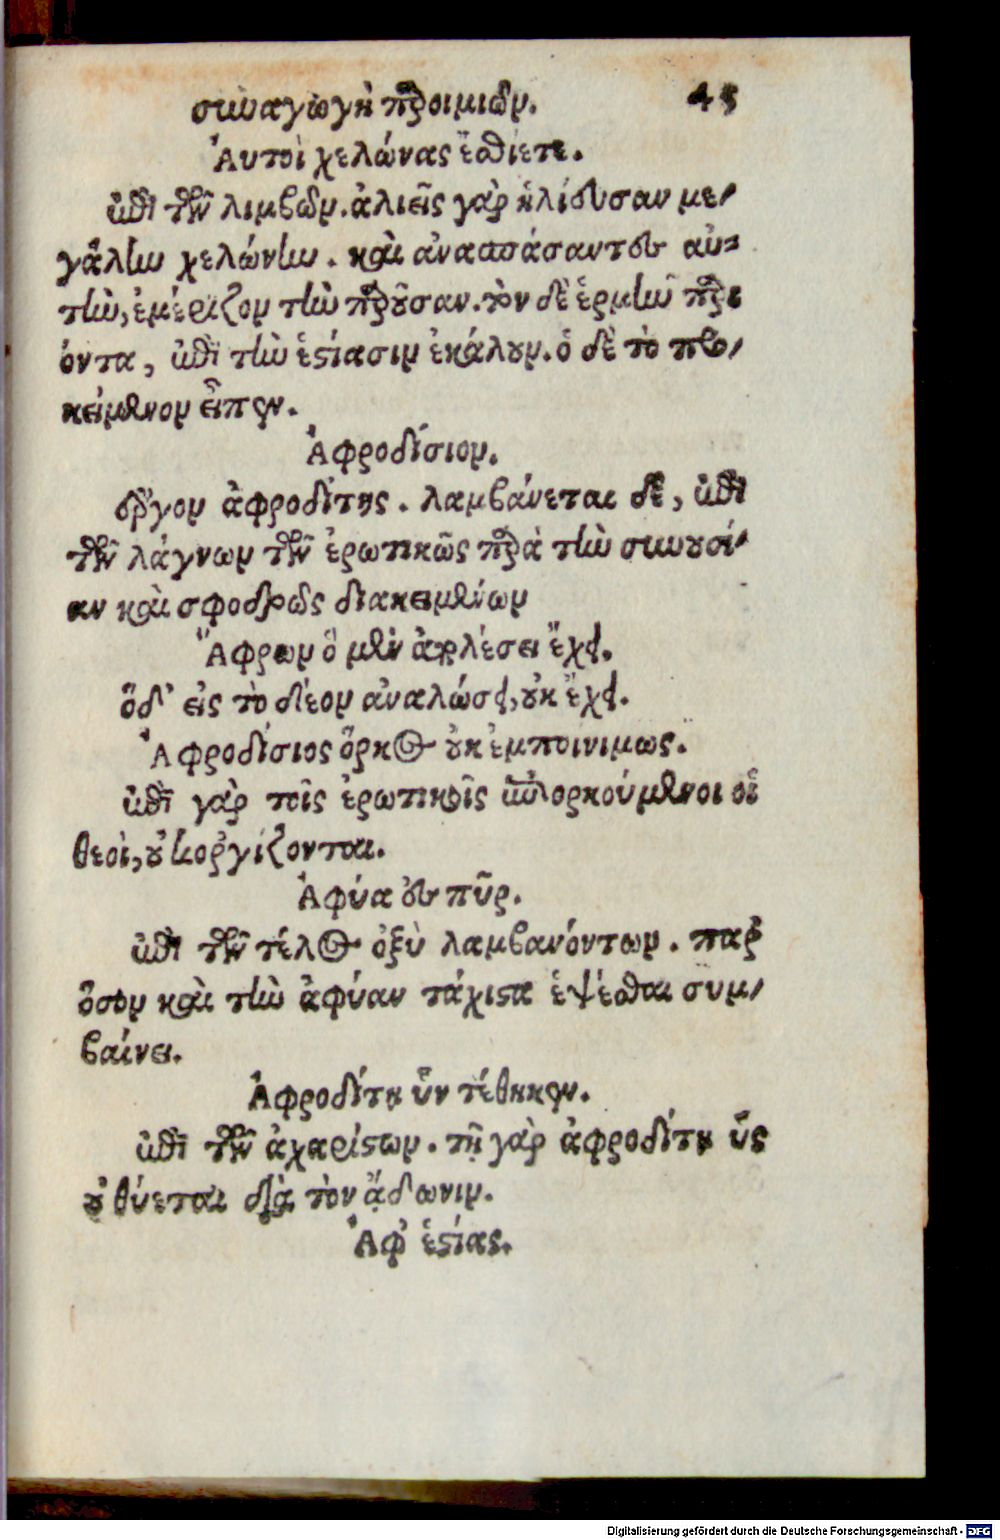 συναγωγὴ παροιμιῶν. 45
Ἀυτοὶ χελώνας ἔσθίετε.
ἐπὶ τῶν λιμβῶν. ἁλιεῖς γὰρ ἡλίευσαν με-
γάλην χελώνην. καὶ ἀνασπάσαντες αὐ-
τὴν, ἐμέριζον τὴν παροῦσαν. τὸν δὲ ἑρμῆν παρι
όντα, ἐπὶ τὴν ἑστίασιν ἐκάλουν. ὁ δὲ τὸ προ-
κείμενον εἶπεν.
Ἀφροδίσιον.
ἔργον ἀφροδίτης. λαμβάνεται δὲ, ἐπὶ
τῶν λάγνων τῶν ἐρωτικῶς παρὰ τὴν συνουσί-
αν καὶ σφοδρῶς διακειμένων
Ἄφρων ὃ μὲν ἀφλέσει ἔχει.
ὅδ' εἰς τὸ δέον ἀναλώσει, οὐκ ἔχει.
Ἀφροδίσιος ὅρκος οὐκ ἐμποινιμως.
ἐπὶ γὰρ τοῖς ἐρωτικοῖς ἐπιορκούμενοι οἱ
θεοὶ, οὐκ ὀργίζονται.
Ἀφύα ἐς πῦρ.
ἐπὶ τῶν τέλος ὀξὺ λαμβανόντων. παρ'
ὅσον καὶ τὴν ἀφύαν τάχιστα ἑψέσθαι συμ-
βαίνει.
Ἀφροδίτη ὗν τέθηκεν.
ἐπὶ τῶν ἀχαρίστων. τῇ γὰρ ἀφροδίτη ὗς
οὐ θύεται διὰ τὸν ἄδωνιν.
Ἀφ' ἑστίας.
Digitalisierung gefördert durch die Deutsche Forschungsgemeinschaft - DFG